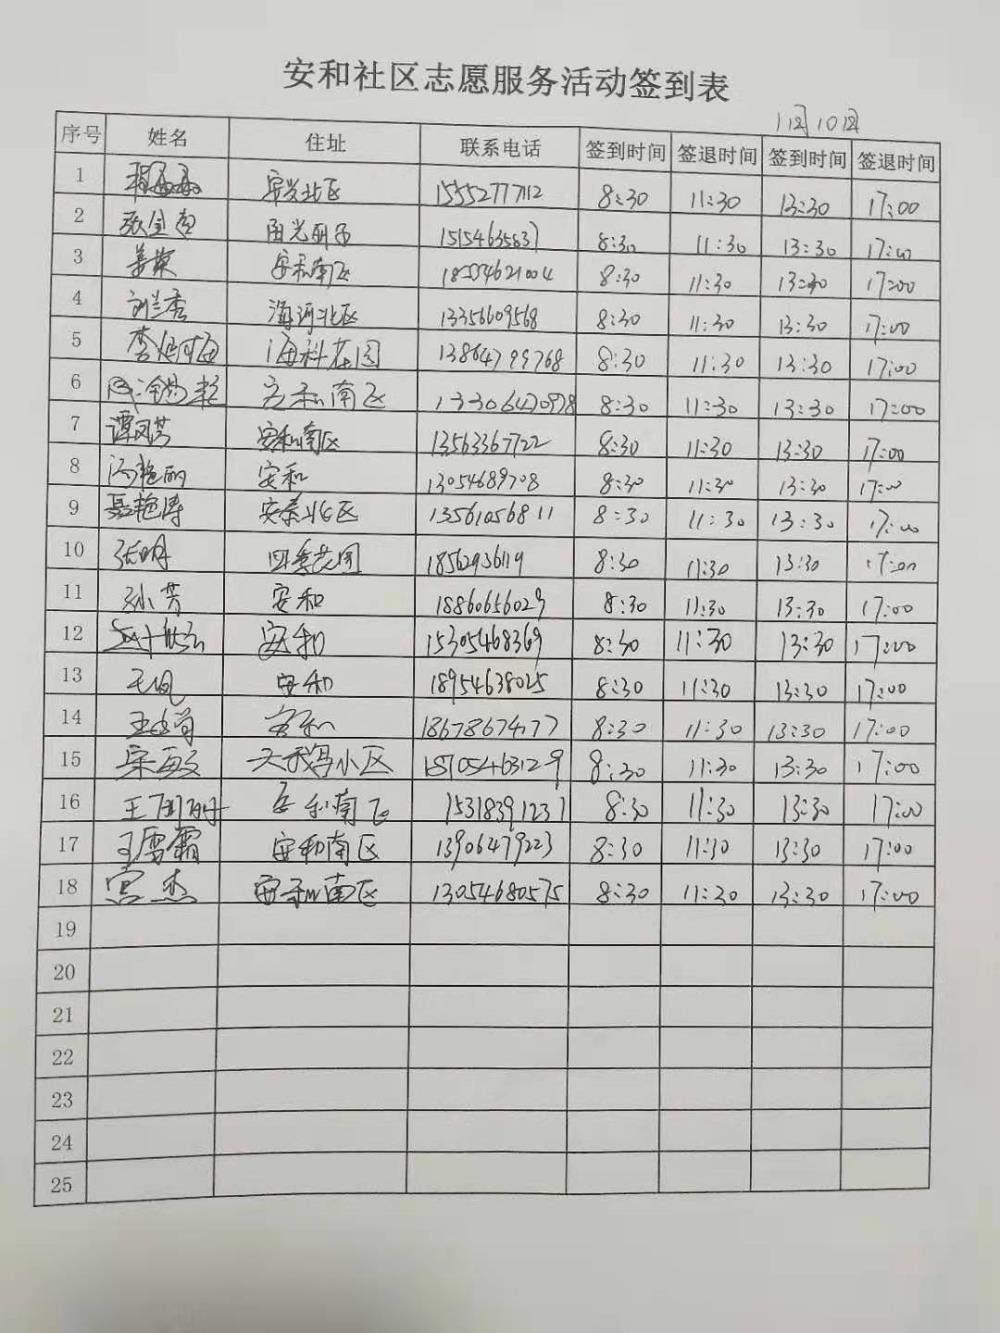 安和社区志愿服务活动签到表
序号 姓名 住址 联系电话 签到时间 签退时间 签到时间 签退时间
1 安兴北区 15552777112 8:30 11:30 13:30 17:00
2 8:30 11:30 13:30 17:00
3 姜荣 安和南区 18554621004 8:30 11:30 13:30 17:00
4 刘兰香 海河北区 13356609568 8:30 11:30 13:30 17:00
5 海科花园 13864799768 8:30 11:30 13:30 17:00
6 安和南区 13306470978 8:30 11:30 13:30 17:00
7 谭凤芳 安和南区 13563367722 8:30 11:30 13:30 17:00
8 冯艳丽 安和 13054689708 8:30 11:30 13:30 17:00
9 聂艳涛 安泰北区 13561056811 8:30 11:30 13:30 17:00
10 张明 四季花园 18562936119 8:30 11:30 13:30 17:00
11 孙芳 安和 18860656029 8:30 11:30 13:30 17:00
12 安和 15305468369 8:30 11:30 13:30 17:00
13 安和 18954638025 8:30 11:30 13:30 17:00
14 安和 18678674777 8:30 11:30 13:30 17:00
15 宋敏 天鹅小区 15705463129 8:30 11:30 13:30 17:00
16 安和南区 15318391231 8:30 11:30 13:30 17:00
17 王雪霜 安和南区 13906479223 8:30 11:30 13:30 17:00
18 宫杰 安和南区 13054680575 8:30 11:30 13:30 17:00
19
20
21
22
23
24
25